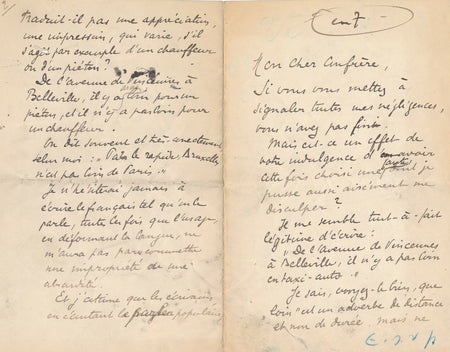 en 7
Mon cher Confrère,
Si vous vous mettez à
signaler toutes mes négligences,
vous n'avez pas fini.
Mais est-ce un effet de
votre indulgence d'avoir
cette fois choisi une faute dont je
puisse aussi aisément me
disculper ?
Il me semble tout-à-fait
légitime d'écrire :
"De l'avenue de Vincennes
à Belleville, il n'y a pas loin
en taxi-auto."
Je sais, voyez-le bien, que
"loin" est un adverbe de distance
et non de durée, mais ne
2/
traduit-il pas une appréciation,
une impression, qui varie, s'il
s'agit par exemple d'un chauffeur
ou d'un piéton ?
De l'avenue de Vincennes à
Belleville, il y a loin pour un
piéton, et il n'y a pas loin pour
un chauffeur.
On dit souvent et très correctement
selon moi : "Par le rapide, Bruxelles
n'est pas loin de Paris."
Je n'hésiterai jamais à
écrire le français tel qu'on le
parle, toutes les fois que l'usage,
en déformant la langue, ne
m'aura pas paru commettre
une impropriété ou une
absurdité.
Et j'estime que les écrivains,
en écoutant le populaire